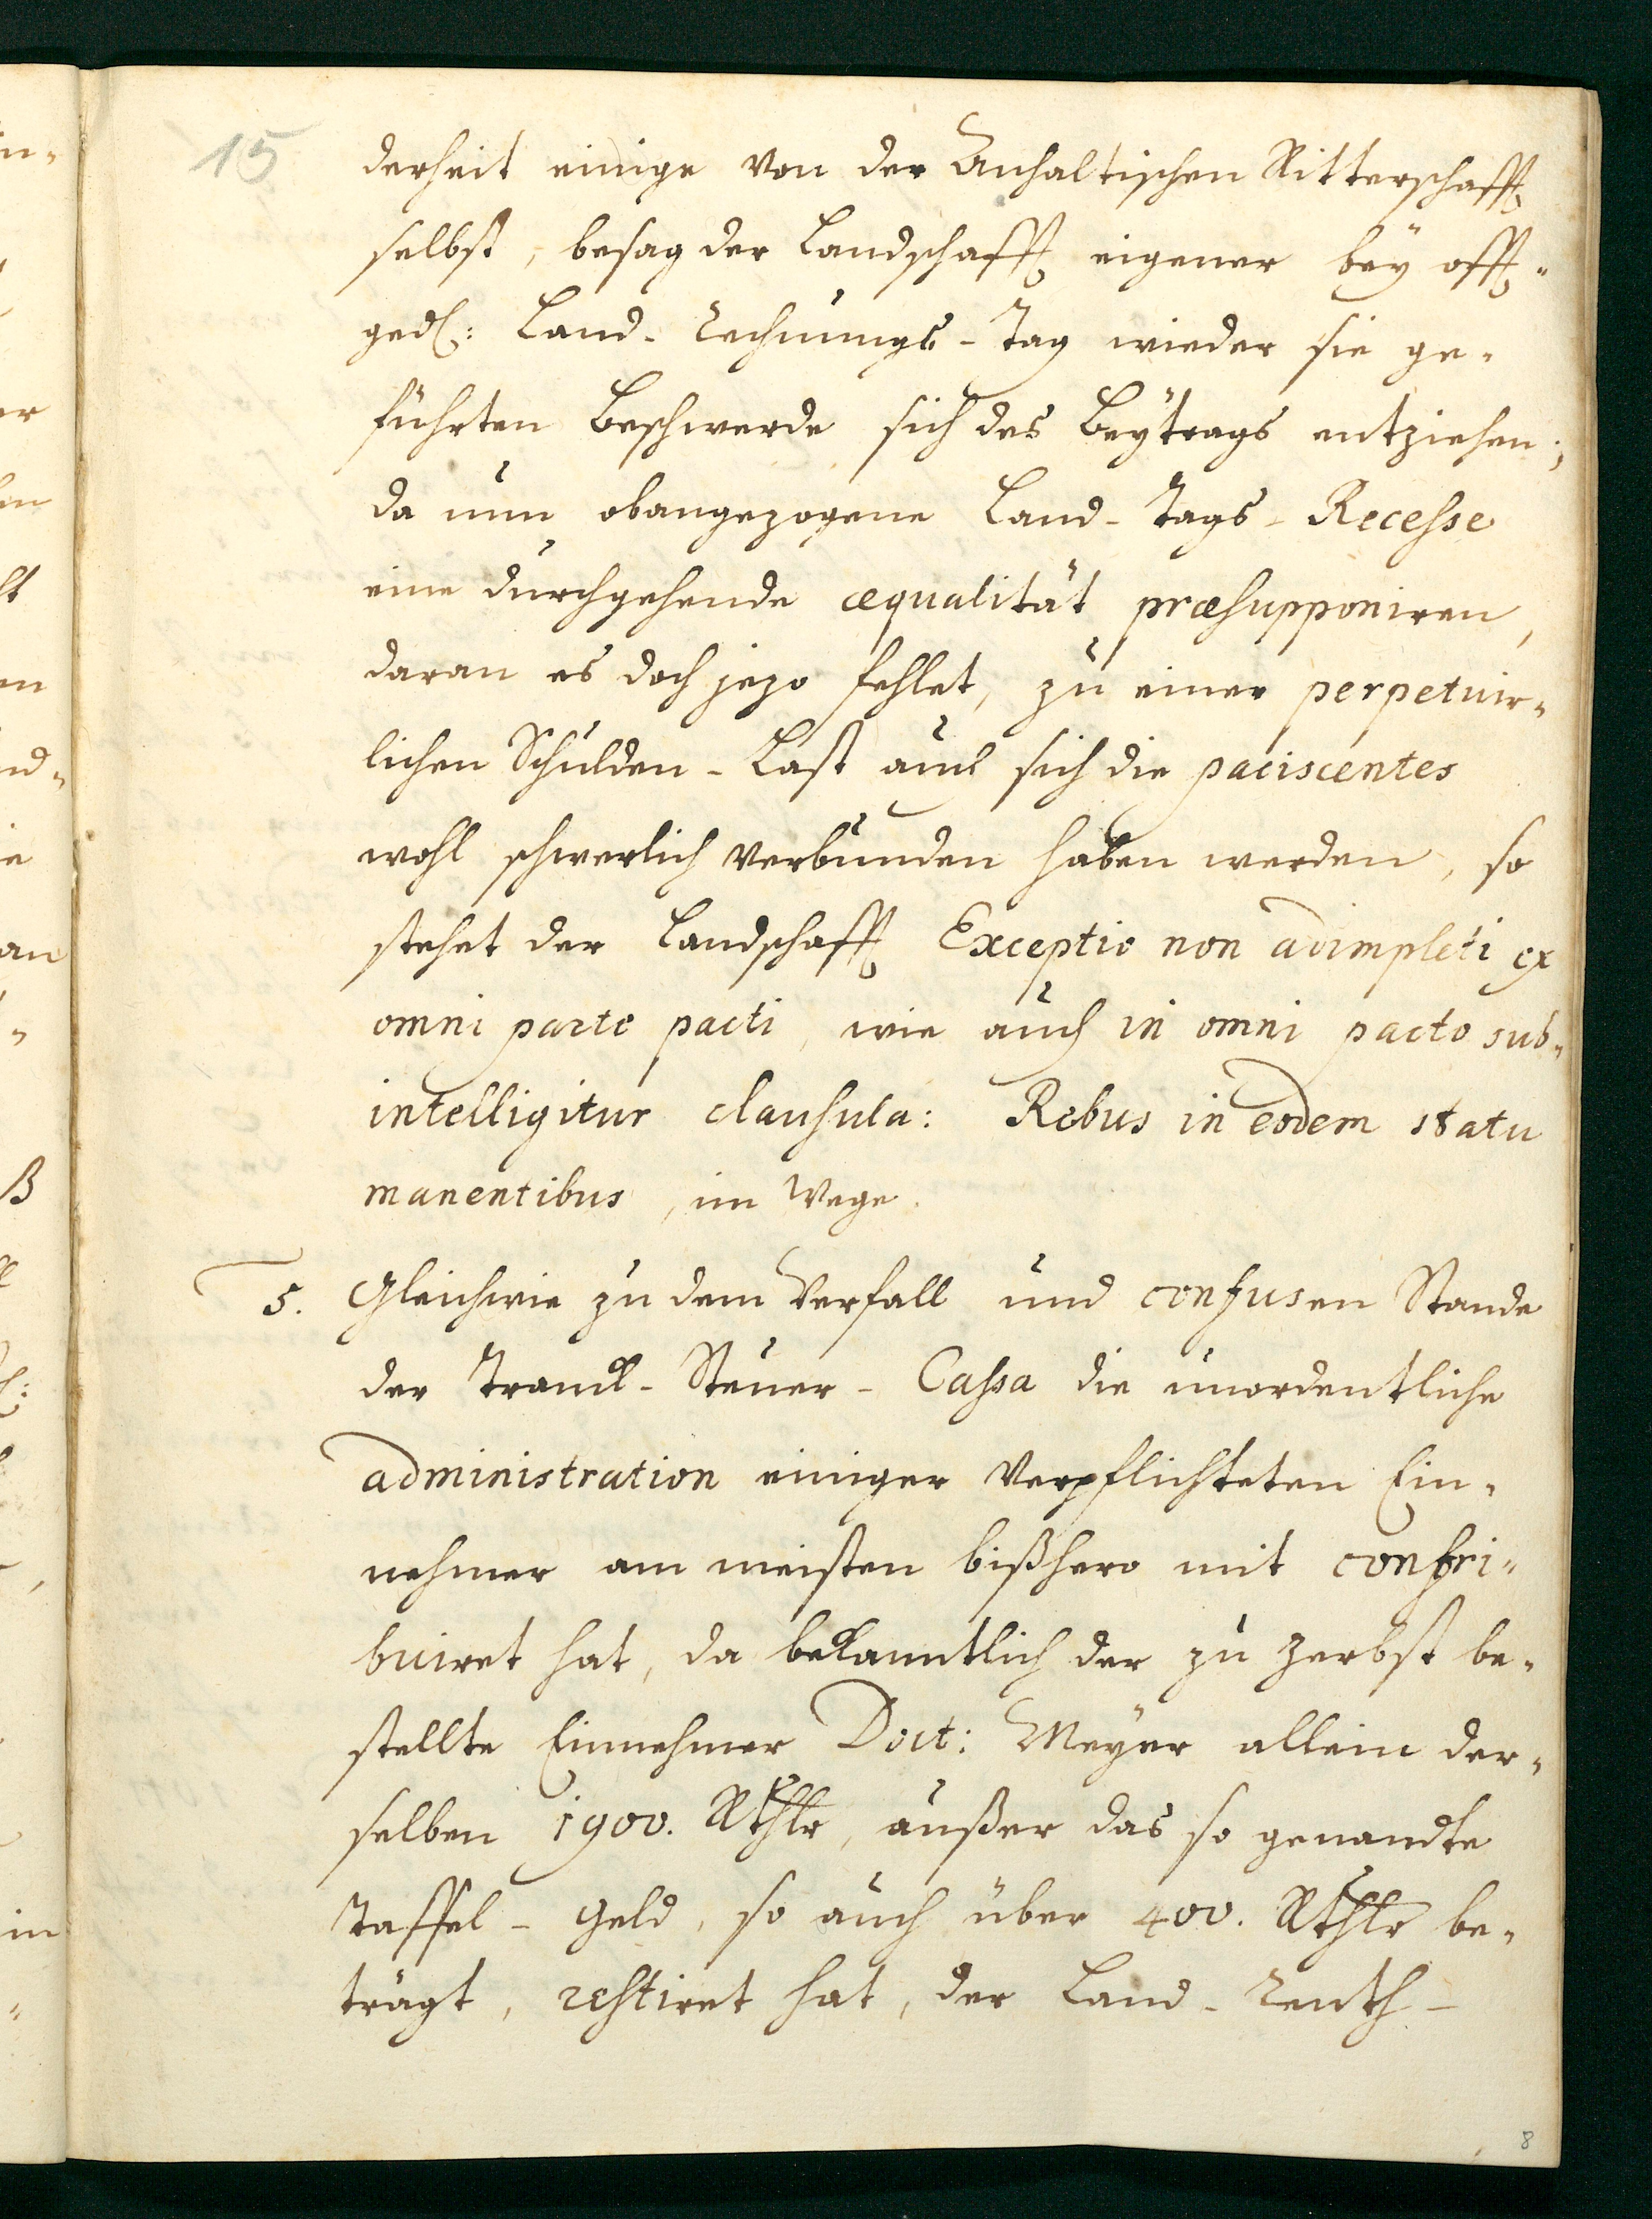 15
derheit einige von der Anhaltischen Ritterschafft
selbst, besag der Landschafft eigener bey offt-
ged: Land-Rechnungs-Tag wieder sie ge-
führten Beschwerde sich des Beytrags entziehen;
da nun obangezogene Land-Tags-Recesse
eine durchgehende æqualität præsupponiren,
daran es doch jezo fehlet, zu einer perpetuir-
lichen Schulden-Last auch sich die paciscentes
wohl schwerlich verbunden haben werden, so
stehet der Landschafft Exceptio non adimpleti ex
omni parte pacti, wie auch in omni pacto sub-
intelligitur clausula: Rebus in eodem statu
manentibus, im Wege.
5. Gleichwie zu dem Verfall und confusen Stande
der Tranck-Steuer-Cassa die unordentliche
administration einiger verpflichteten Ein-
nehmer am meisten bißhero mit contri-
buiret hat, da bekanntlich der zu Zerbst be-
stellte Einnehmer Doct: Meyer allein der-
selben 1900. Rthlr, außer das so genandte
Taffel-Geld, so auch über 400. Rthlr be-
trägt, restiret hat, der Land-Renth-
8